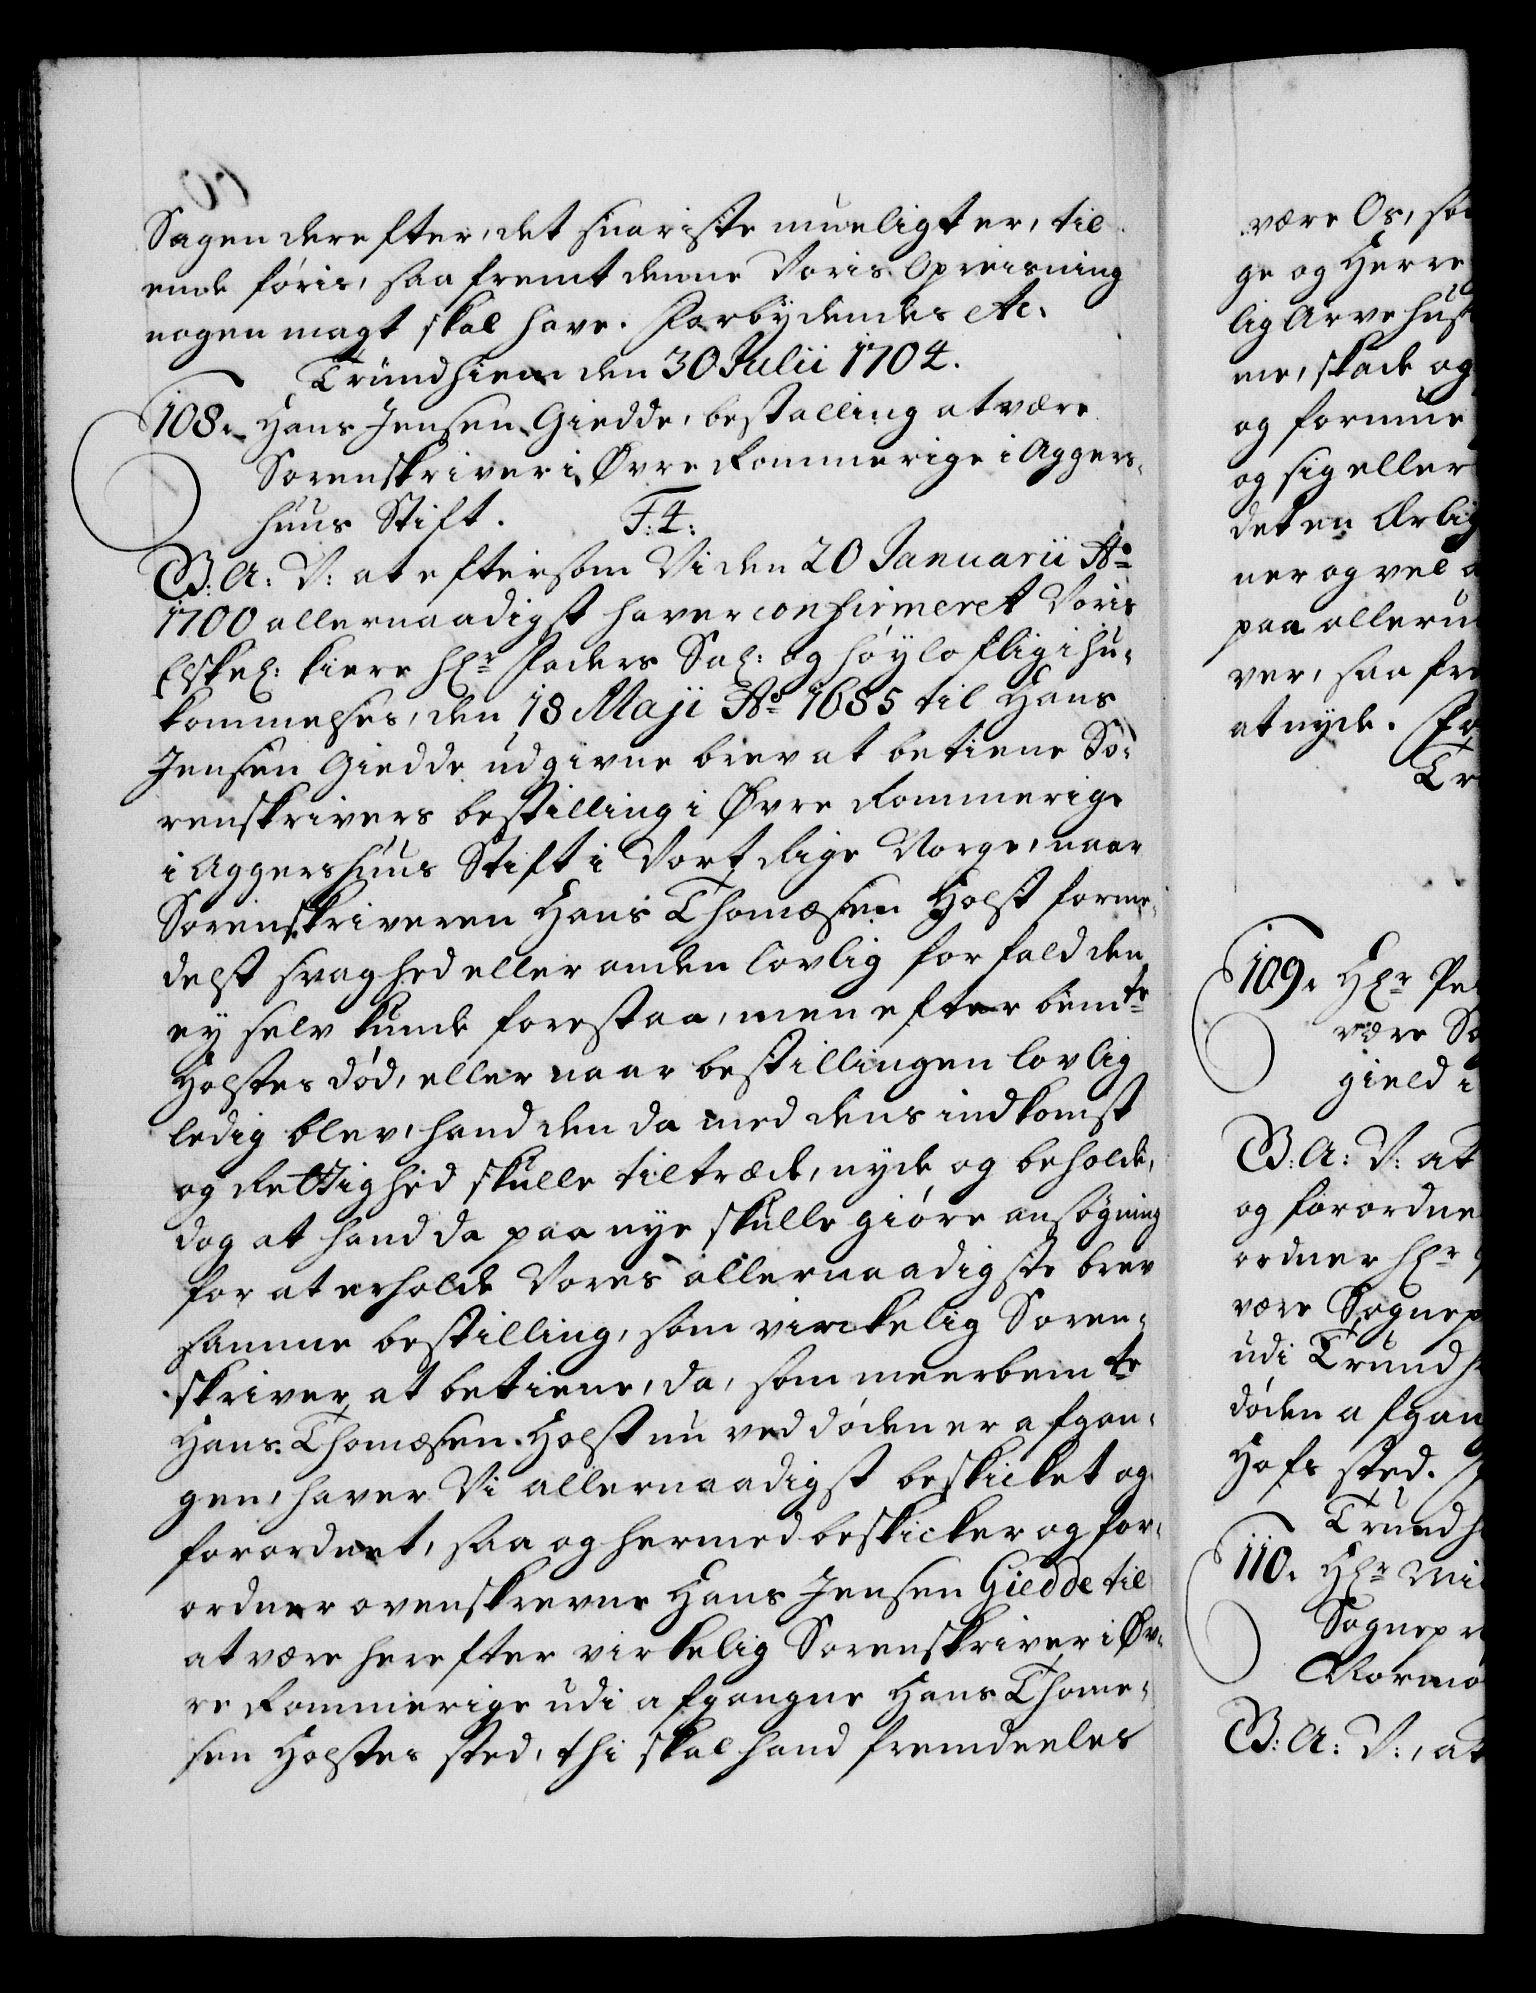 Sagen derefter, det snariste mueligt er, til
ende føris, saa fremt denne Voris Opreisning
nogen magt skal have. Forbydendes etc.
Trundhiem den 30 Julii 1704.
108. Hans Jensen Giedde, bestalling at være
Sorenskriver i Øvre Rommerige i Aggers-
huus Stift. F: 4:
G: A: V: at eftersom Vi den 20 Januarii Ao
1700 allernaadigst haver confirmeret Voris
Elskel: kiere Hr Faders Sal: og høyloflig ihu-
kommelses, den 18 Maji Ao 1685 til Hans
Jensen Giedde udgivne brev at betiene So-
renskrivers bestilling i Øvre Rommerige
i Aggershuus Stift i Vort Rige Norge, naar
Sorenskriveren Hans Thomæsen Holst forme-
delst svaghed eller anden lovlig forfald den
ey selv kunde forestaa, men efter bemte
Holstes død, eller naar bestillingen lovlig
ledig blev, hand den da med dens indkomst
og Rettighed skulle tiltræde, nyde og beholde,
dog at hand da paa nye skulle giøre ansøgning
for at erholde Vores allernaadigste brev
samme bestilling, som virckelig Soren-
skriver at betiene, da, som meerbemte
Hans Thomæsen Holst nu ved døden er afgan-
gen, haver Vi allernaadigst beskicket og
forordnet, saa og hermed beskicker og for-
ordner ovenskrevne Hans Jensen Giedde til
at være herefter virkelig Sorenskriver i Øv-
re Rommerige udi afgangne Hans Thome-
sen Holstes sted, thi skal hand fremdeeles
være Os, so
ge og Herre
lig Arvehus
me, skade og
og formue
og sig eller
det en Ærlig
ner og vel
paa alleru
ver, saa fre
at nyde. Fo
Tr
109. Hr Pe
være So
gield i
G: A: V: at
og forordne
ordner Hr
være Sognep
udi Trundh
døden afgan
Hofs sted.
Trundh
110. Hr Mi
Sognepr
Normø
G: A: V:, at